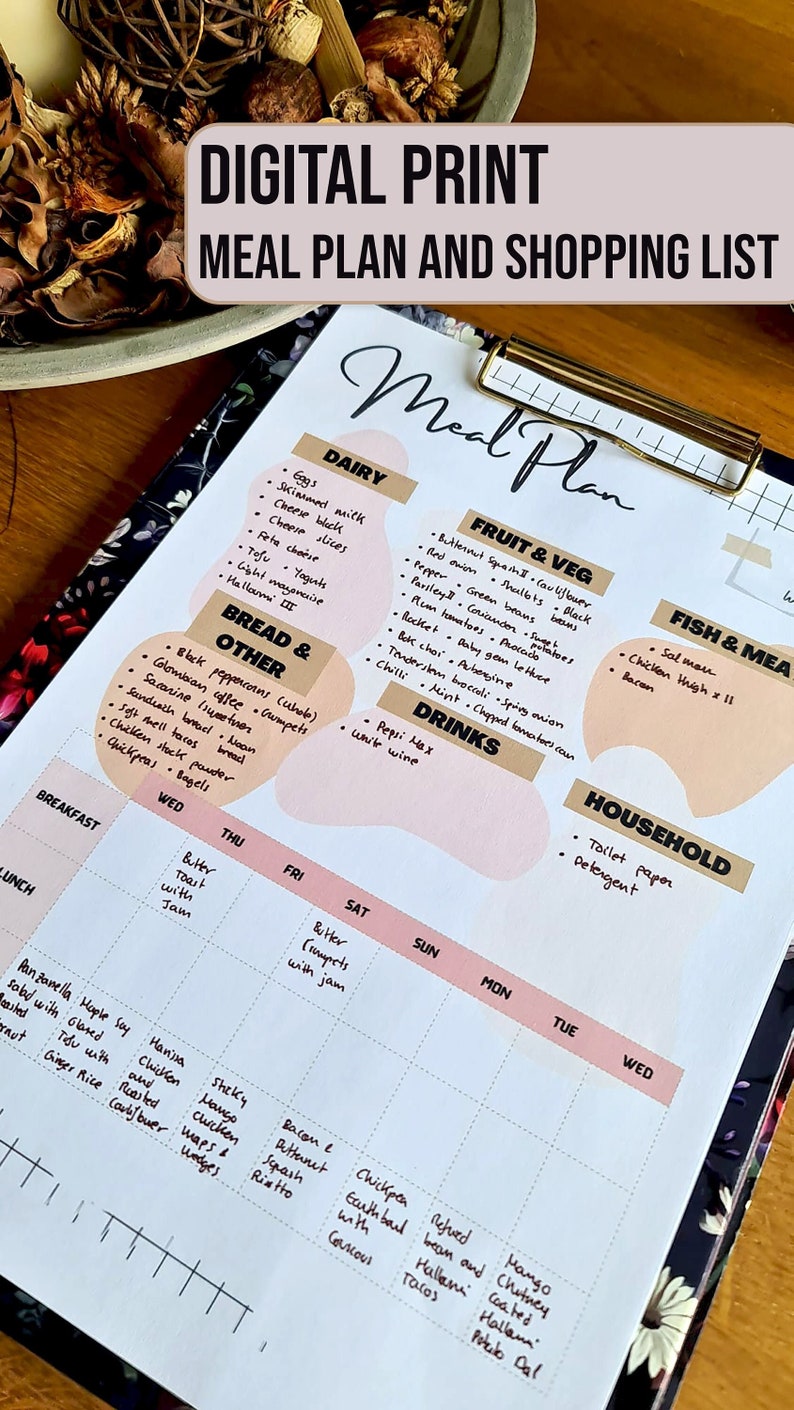 DIGITAL PRINT
MEAL PLAN AND SHOPPING LIST
Meal Plan
DAIRY
• Eggs
• Skimmed milk
• Cheese block
• Cheese slices
• Feta cheese
• Tofu • Yoguts
• Light mayonaise
• Halloumi III
FRUIT & VEG
• Butternut Squash II • Cauliflower
• Red onion • Shallots • Black beans
• Pepper • Green beans
• Parsley II • Coriander • Sweet potatoes
• Plum tomatoes • Avocado
• Rocket • Baby gem lettuce
• Bok choi • Aubergine
• Tenderstem broccoli • Spring onion
• Chilli • Mint • Chopped tomatoes can
FISH & MEA
• Salmon
• Chicken thigh x II
• Bacon
BREAD & OTHER
• Black peppercorns (whole)
• Colombian coffee • Crumpets
• Sacarine (sweetner
• Sandwich bread • Naan bread
• Soft shell tacos
• Chicken stock powder
• Chickpeas • Bagels
DRINKS
• Pepsi Max
• White wine
HOUSEHOLD
• Toilet paper
• Detergent
WED THU FRI SAT SUN MON TUE WED
BREAKFAST
Butter
Toast
with
Jam
Butter
Crumpets
with jam
LUNCH
Panzanella
Salad with
Roasted
Maple Soy
Glazed
Tofu with
Ginger Rice
Harissa
Chicken
and
Roasted
Cauliflower
Sticky
Mango
Chicken
Wraps &
Wedges
Bacon &
Butternut
Squash
Risotto
Chickpea
with
Couscous
Refried
bean and
Halloumi
Tacos
Mango
Chutney
Coated
Halloumi
Potato Dal